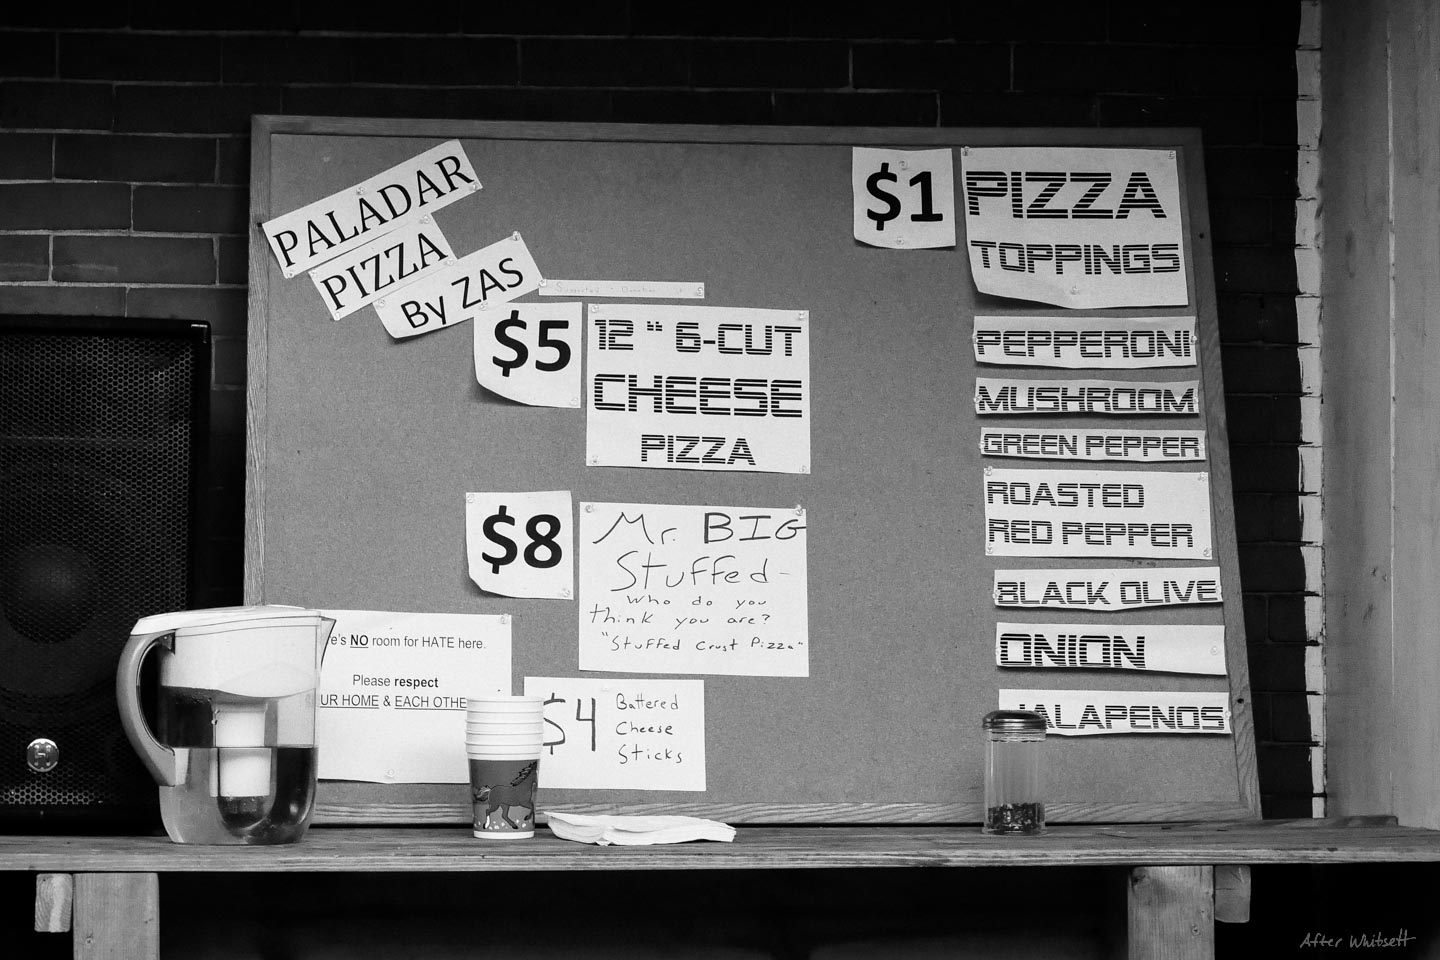 PALADAR
PIZZA
By ZAS
$5
12 " 6-CUT
CHEESE
PIZZA
$8
Mr. BIG
Stuffed-
Who do you
think you are?
"Stuffed Crust Pizza"
e's NO room for HATE here.
Please respect
UR HOME & EACH OTHE
$4
Battered
Cheese
Sticks
$1
PIZZA
TOPPINGS
PEPPERONI
MUSHROOM
GREEN PEPPER
ROASTED
RED PEPPER
BLACK OLIVE
ONION
JALAPENOS
After Whitsett